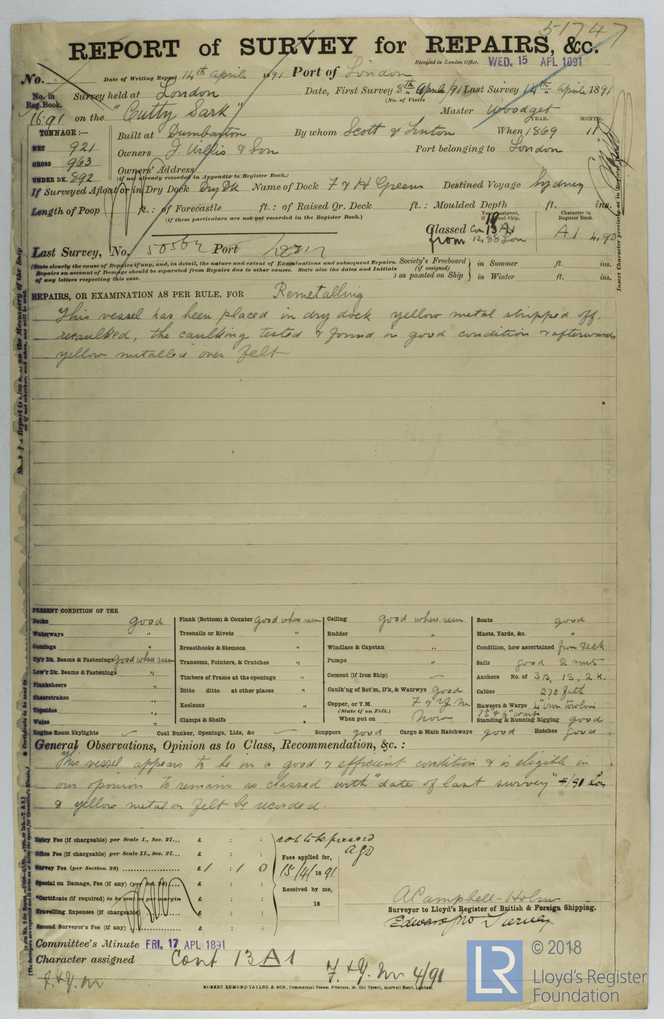 51747
REPORT of SURVEY for REPAIRS, &c.
Received in London Office, WED. 15 APL 1891
No. Date of Writing Report 14th April 1891 Port of London
No. in Reg. Book. Survey held at London Date, First Survey 8th April/91 Last Survey 14th April 1891
(No. of Visits
1691 on the "Cutty Sark" Master Woodget
TONNAGE:— YEAR. MONTH.
NET 921 Built at Dumbarton By whom Scott & Linton When 1869 11
GROSS 963 Owners J. Willis & Son Port belonging to London
UNDER DK. 892 Owners' Address
(if not already recorded in Appendix to Register Book.)
If Surveyed Afloat or in Dry Dock Dry Dk Name of Dock F & H Greens Destined Voyage Sydney
Length of Poop ft.: of Forecastle ft.: of Raised Qr. Deck ft.: Moulded Depth ft. ins.
(if these particulars are not yet recorded in the Register Book.)
Character in Register Book.
Classed 13 A1 A1 4,90
from 12,88 Lon
Last Survey, No. Port
(State clearly the cause of Repairs if any, and, in detail, the nature and extent of Examinations and subsequent Repairs.
Repairs on account of Damage should be separated from Repairs due to other causes. State also the dates and Initials
of any letters respecting this case.
Society's Freeboard (if assigned) as painted on Ship in Summer ft. ins.
in Winter ft. ins.
REPAIRS, OR EXAMINATION AS PER RULE, FOR Remetalling
This vessel has been placed in dry dock yellow metal stripped off.
recaulked, the caulking tested & found in good condition & afterwards
yellow metalled over felt
PRESENT CONDITION OF THE
Decks good
Waterways "
Comings "
Up'r Dk. Beams & Fastenings good where seen
Low'r Dk. Beams & Fastenings "
Planksheers "
Sheerstrakes "
Topsides "
Wales "
Engine Room Skylights
Plank (Bottom) & Counter good where seen
Treenails or Rivets "
Breasthooks & Stemson "
Transoms, Pointers, & Crutches "
Timbers of Frame at the openings "
Ditto ditto at other places "
Keelsons "
Clamps & Shelfs "
Coal Bunker, Openings, Lids, &c
Ceiling good where seen
Rudder "
Windlass & Capstan "
Pumps "
Cement (if Iron Ship)
Caulk'ng of Bot'm, D'k, & Watrwys good
Copper, or Y.M. F & Y. M
(State if on Felt.)
When put on Now
Scuppers good
Cargo & Main Hatchways good
Boats good
Masts, Yards, &c. "
Condition, how ascertained from deck
Sails good 2 suits
Anchors No. of 3B, 1S, 2K.
Cables 270 fath
Hawsers & Warps
Standing & Running Rigging good
Hatches good
General Observations, Opinion as to Class, Recommendation, &c.:
This vessel appears to be in a good & efficient condition & is eligible in
our opinion to remain as classed with "date of last survey" 4/91 Lon
& yellow metal on felt be recorded.
Entry Fee (if chargeable) per Scale I., Sec. 27... £ : :
Office Fee (if chargeable) per Scale II., Sec. 27... £ : :
Survey Fee (per Section 28) £ 1 : 1 : 0
Special on Damage, Fee (if any) £ : :
Certificate (if required) to be sent as per margin
Travelling Expenses (if chargeable) £ : :
Second Surveyor's Fee (if any) £ : :
Fees applied for,
15/4/1891
Received by me,
18
A Campbell-Holms
Surveyor to Lloyd's Register of British & Foreign Shipping.
Committee's Minute FRI. 17 APL 1891
Character assigned Cont 13 A1
F. & Y. M F. & Y. M 4/91
ROBERT EDMUND TAYLOR & SON, Commercial Steam Printers,
LR
© 2018
Lloyd's Register
Foundation